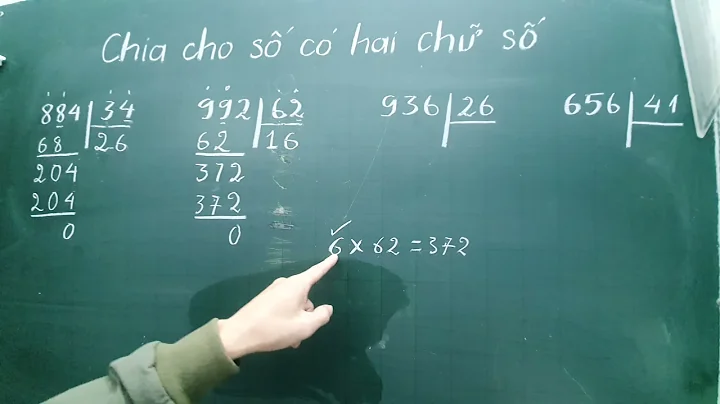 Chia cho số có hai chữ số
884 34
68 26
204
204
0
992 62
62 16
372
372
0
936 26
656 41
6 x 62 = 372